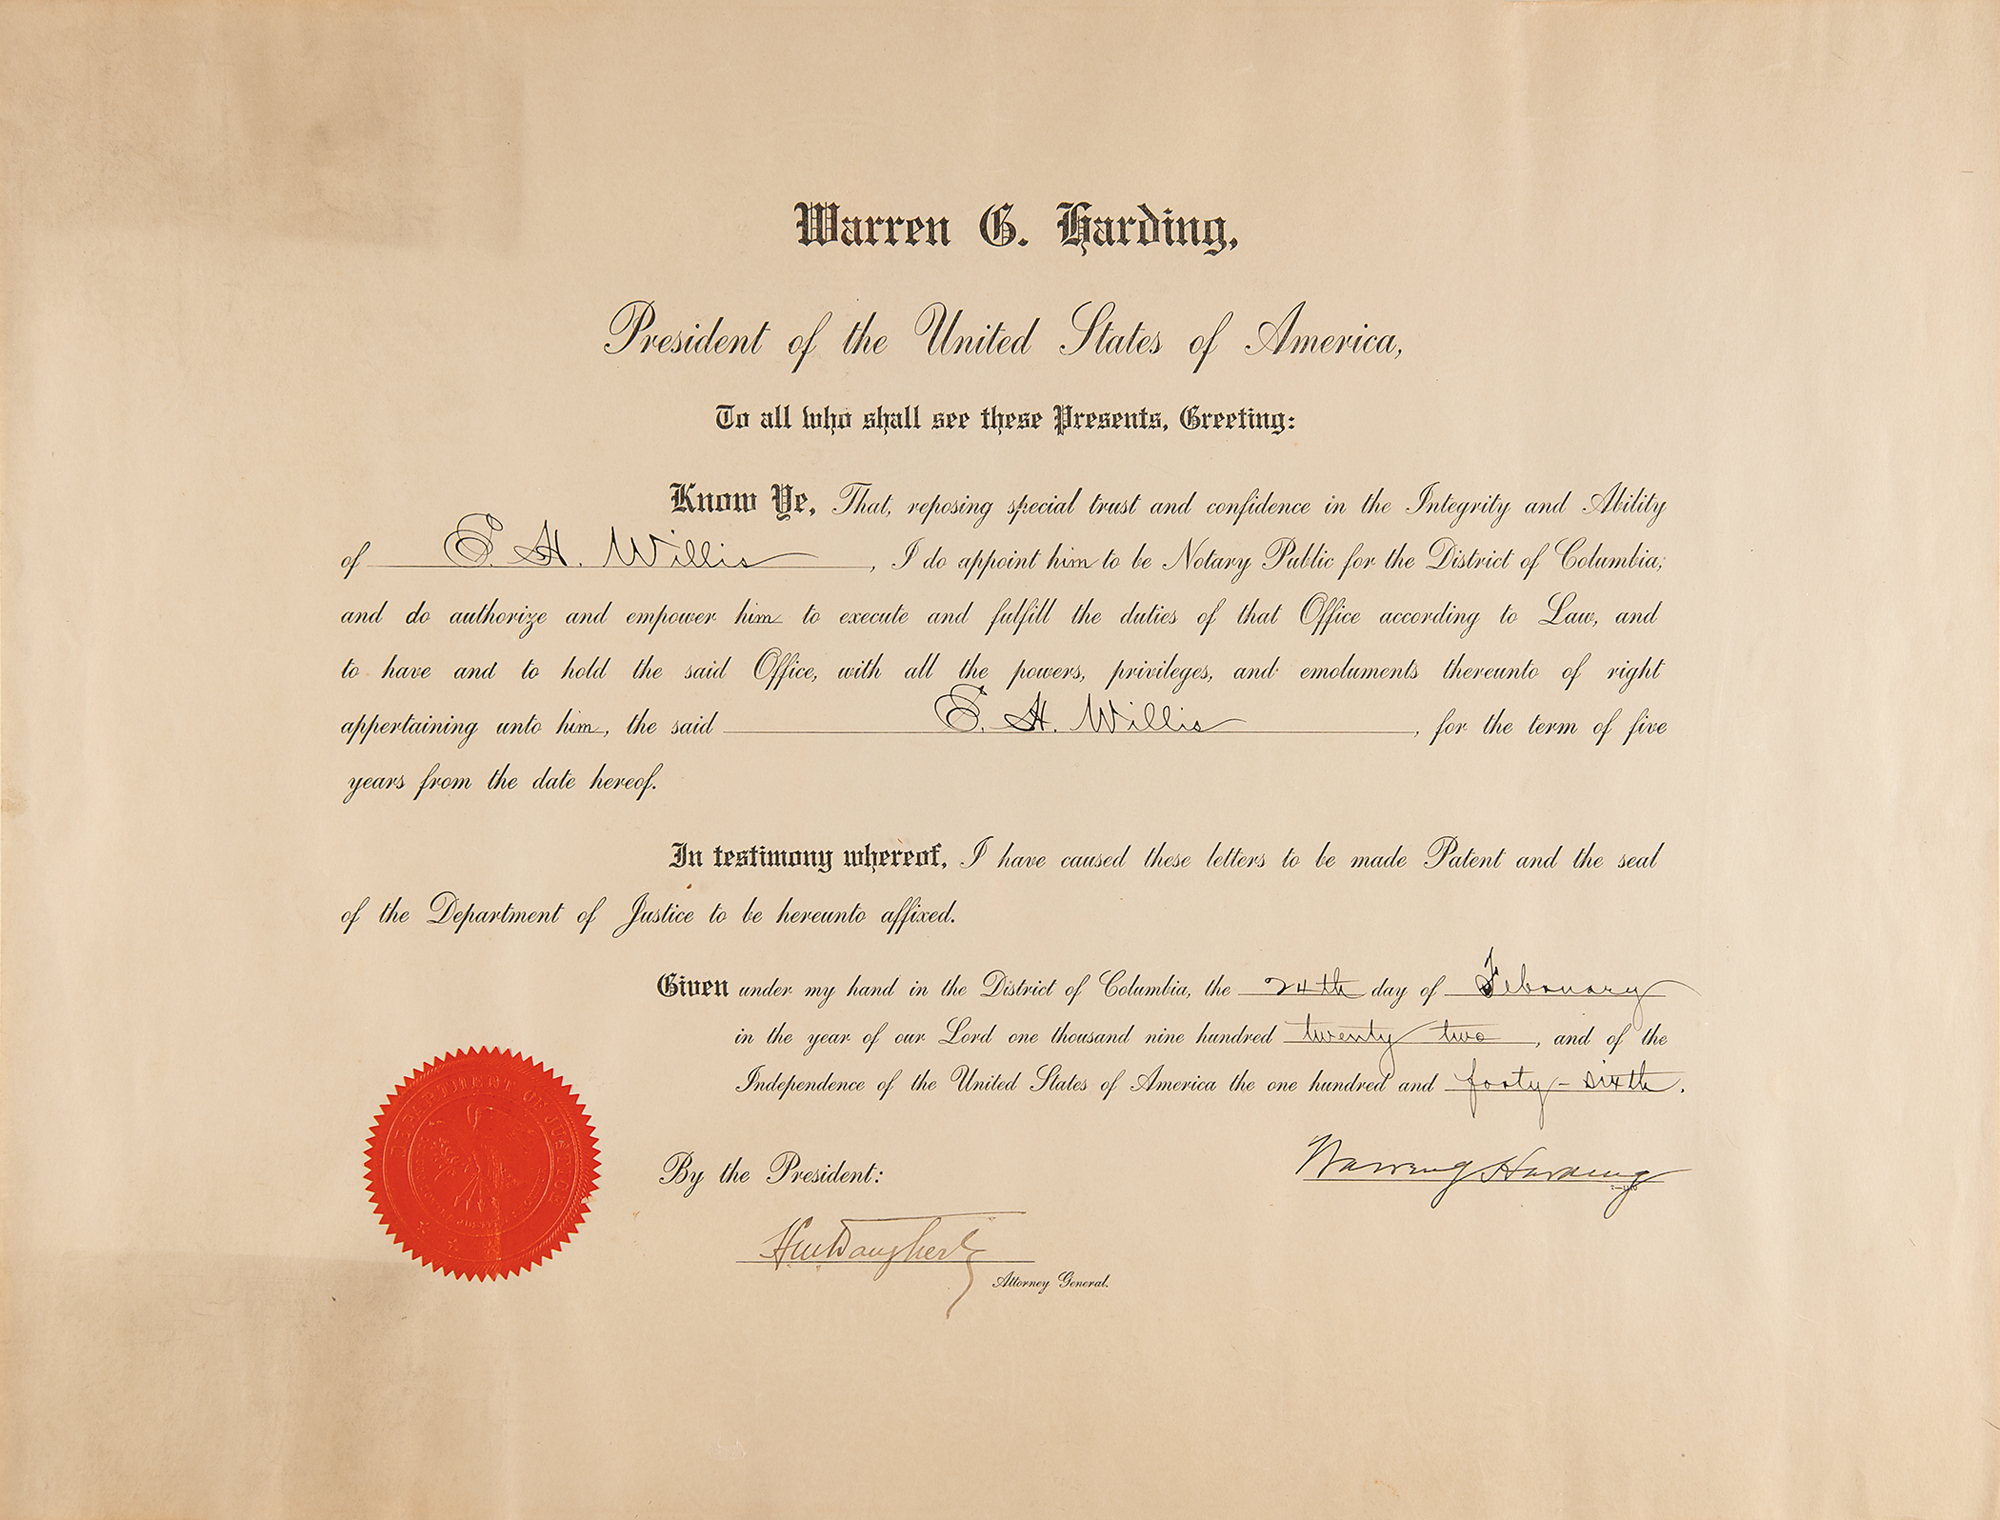 Warren G. Harding,
President of the United States of America,
To all who shall see these Presents, Greeting:
Know Ye, That, reposing special trust and confidence in the Integrity and Ability
of E. H. Willis, I do appoint him to be Notary Public for the District of Columbia;
and do authorize and empower him to execute and fulfill the duties of that Office according to Law, and
to have and to hold the said Office, with all the powers, privileges, and emoluments thereunto of right
appertaining unto him, the said E. H. Willis, for the term of five
years from the date hereof.
In testimony whereof, I have caused these letters to be made Patent and the seal
of the Department of Justice to be hereunto affixed.
Given under my hand in the District of Columbia, the 24th day of February
in the year of our Lord one thousand nine hundred twenty two, and of the
Independence of the United States of America the one hundred and forty-sixth.
DEPARTMENT OF JUSTICE
By the President:
Warren G Harding
H M Daugherty
Attorney General.